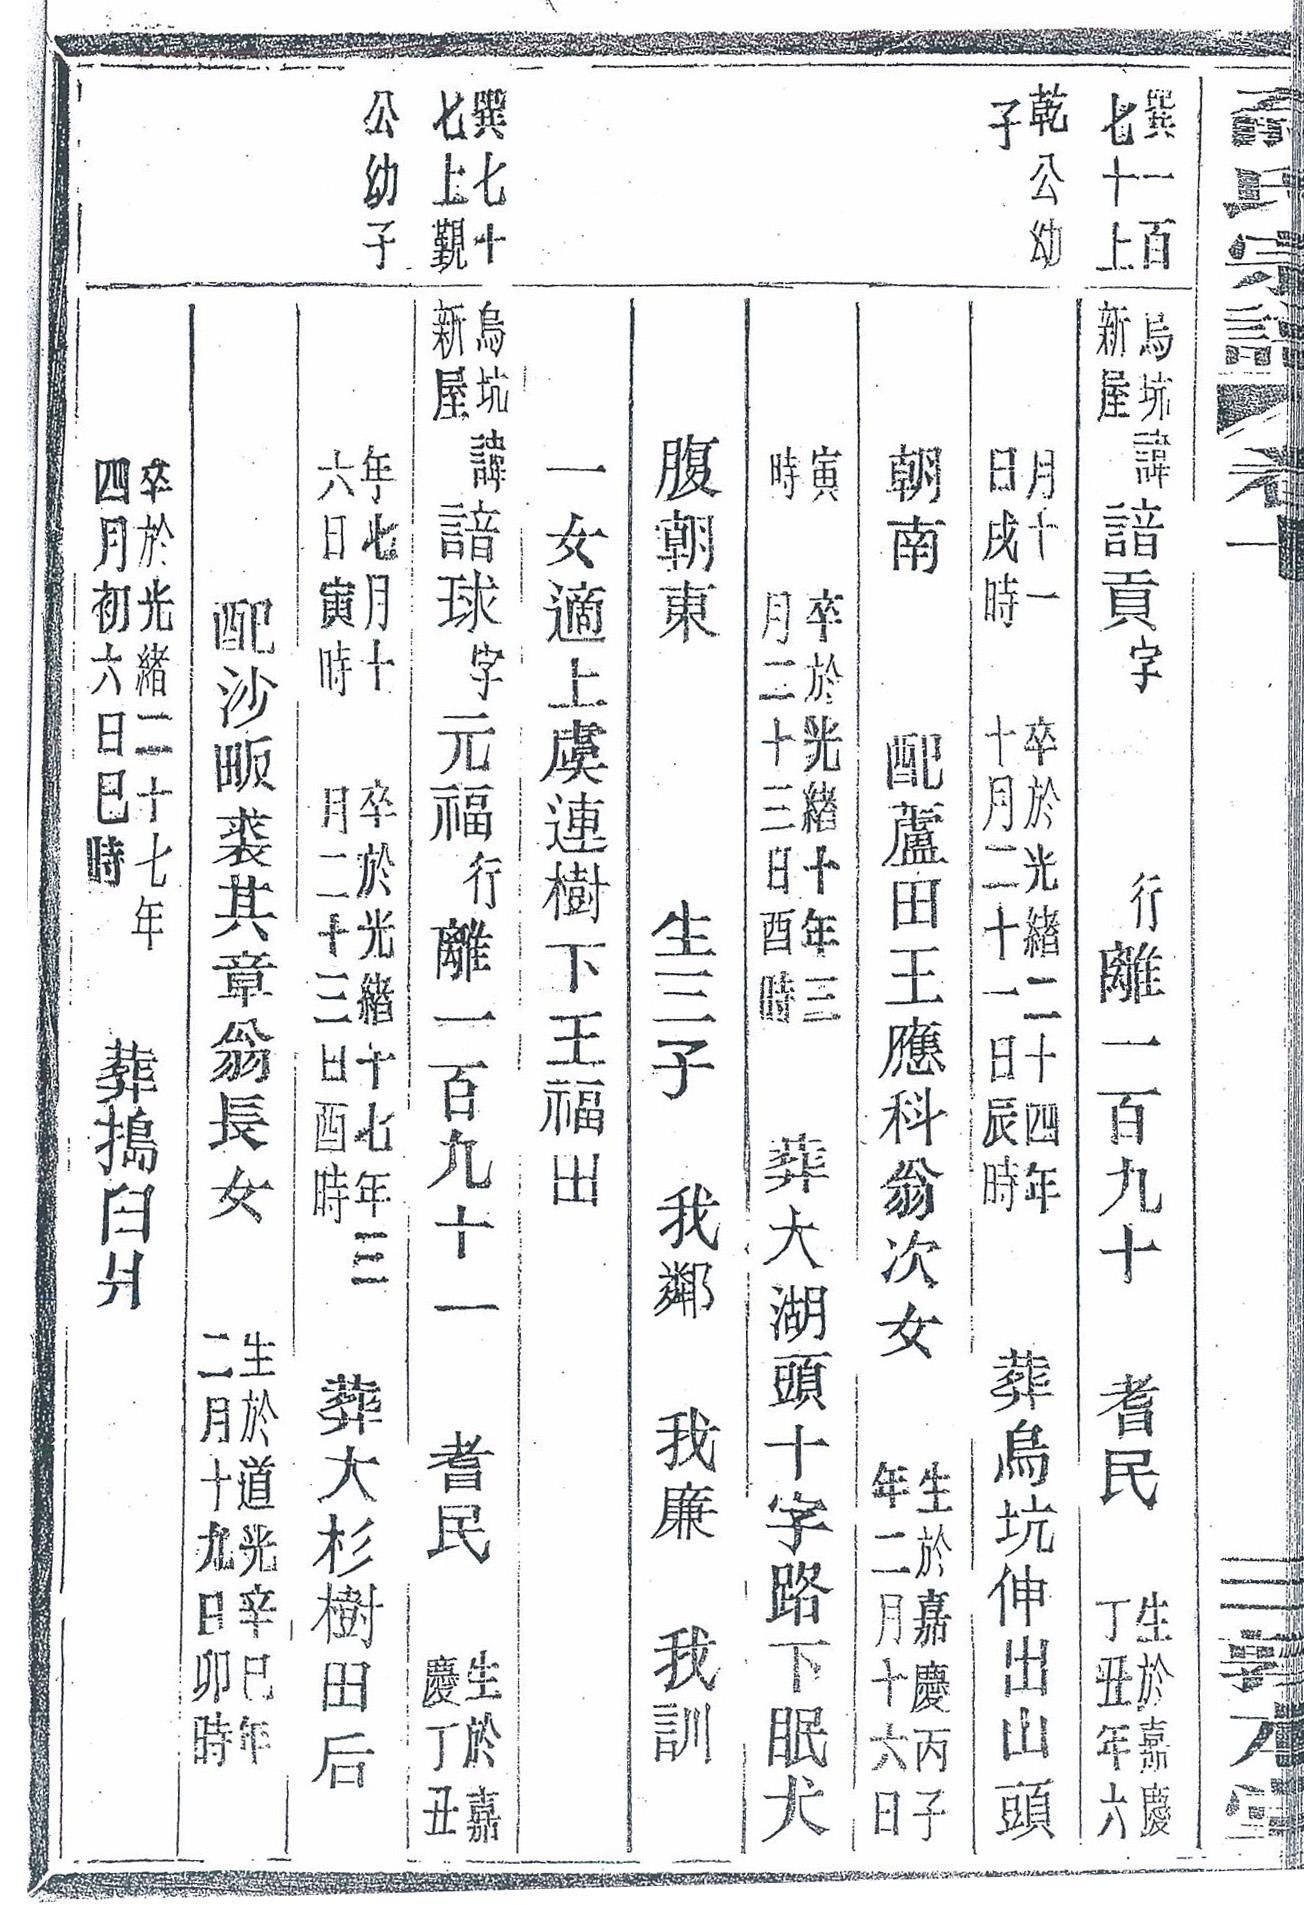 氏宗譜 卷一
巽一百七十上
乾公幼子
烏坑新屋 諱諳貢字 行離一百九十 耆民 生於嘉慶丁丑年六
月十一日戌時 卒於光緒二十四年十月二十一日辰時 葬烏坑伸出山頭
朝南 配蘆田王應科翁次女 生於嘉慶丙子年二月十六日
寅時 卒於光緒十年三月二十三日酉時 葬大湖頭十字路下眠犬
腹朝東 生三子 我鄰 我廉 我訓
一女適上虞連樹下王福出
巽七十七上觀
公幼子
烏坑新屋 諱諳球字元福行離一百九十一 耆民 生於嘉慶丁丑
年七月十六日寅時 卒於光緒十七年三月二十三日酉時 葬大杉樹田后
配沙畈裘其章翁長女 生於道光辛巳年二月十九日卯時
卒於光緒二十七年四月初六日巳時 葬搗臼爿